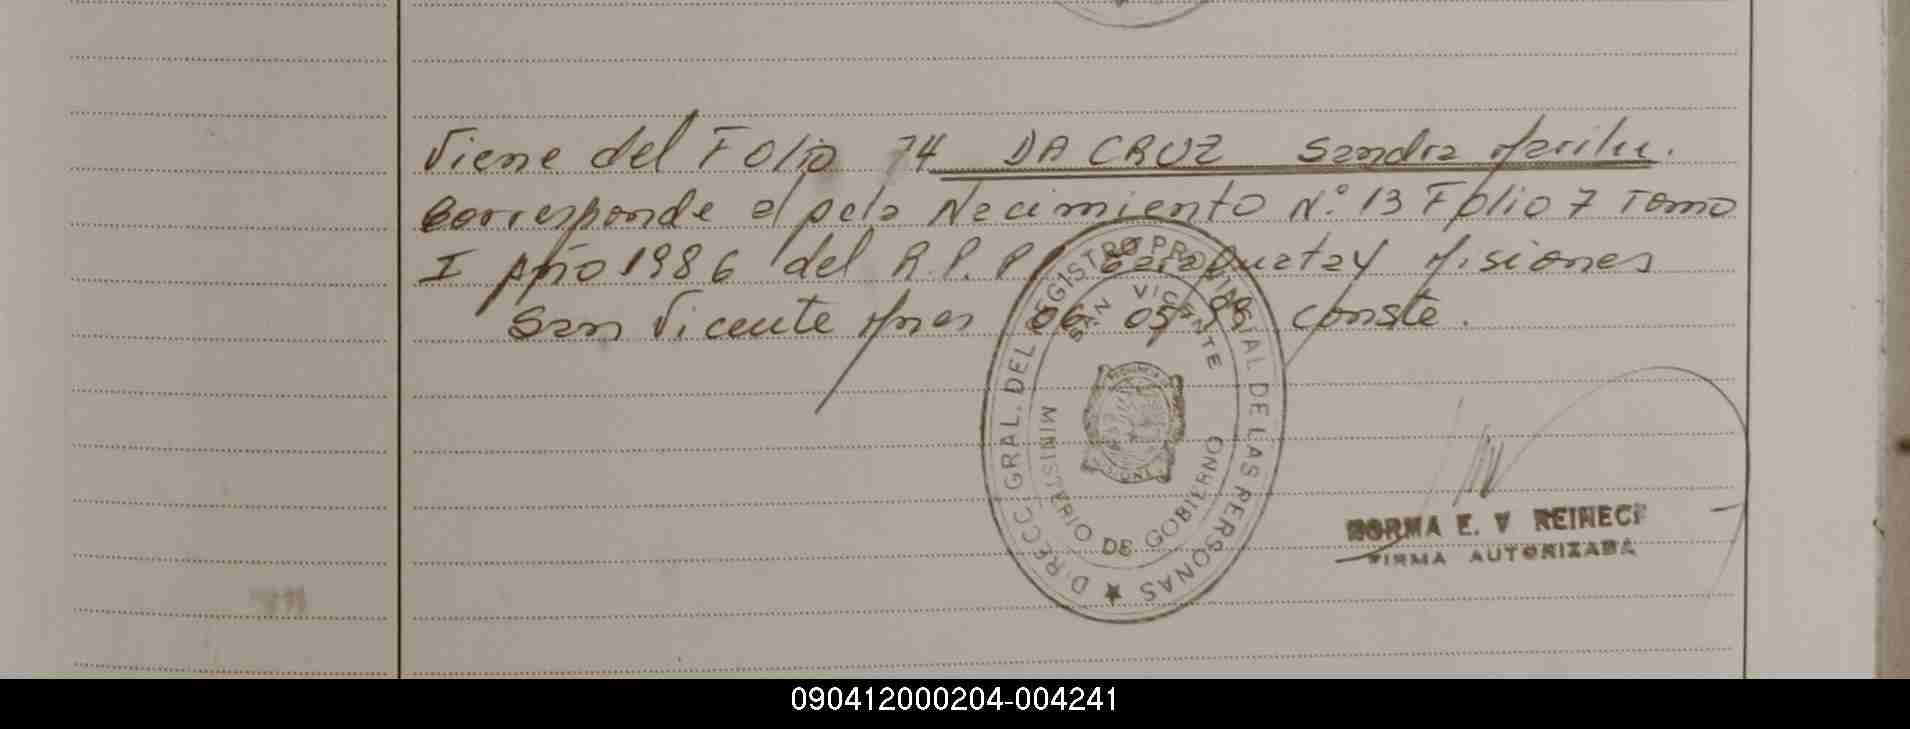 Viene del Folio 74 DA CRUZ Sandra Marilu.
Corresponde al acta Nacimiento N.º 13 Folio 7 Tomo
I Año 1986 del R.P.P. Caraguatay Misiones
San Vicente Mnes 06 05 98 conste.
DIRECC. GRAL. DEL REGISTRO PROVINCIAL DE LAS PERSONAS ★
SAN VICENTE
MINISTERIO DE GOBIERNO
NORMA E. V REINECK
FIRMA AUTORIZADA
090412000204-004241